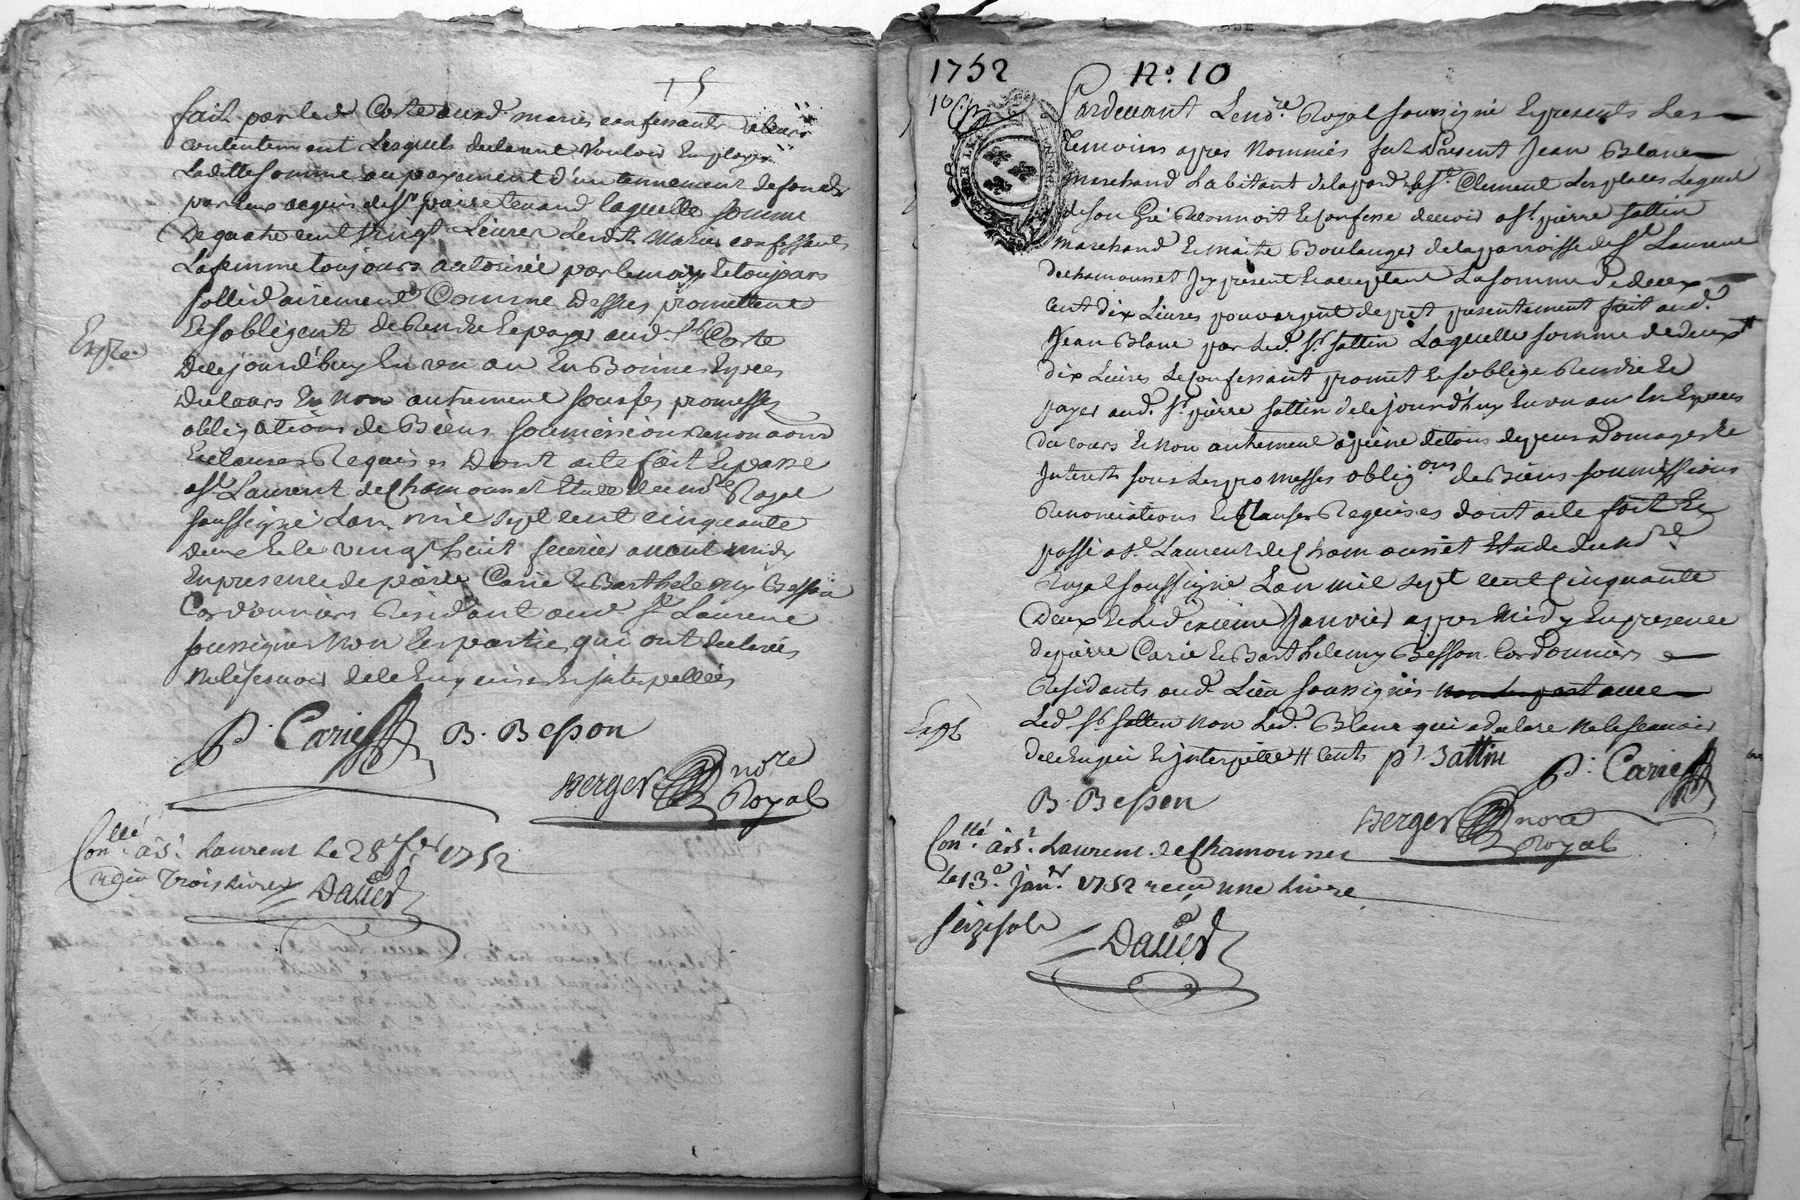 15
fait par led Coste aud. mariés confessants a leur
contentement lesquels declarent vouloir Employer
Laditte somme au payement d'un tennement de fonds
par eux acquis de sr pierre tenaud laquelle somme
De quatre cent vingt Livres lesdts Mariés confessants
La femme toujours authorisée par le mary Et toujours
sollidairement Comme Dessus promettent
Et s'obligent de Rendre Et payer aud. sr Coste
Expé.
De ce jourd'huy En un an En Bonnes Espces
Du cours Et Non autrement sous ses promesses
obligations de Biens soumissions Renonaons
Et clauses Requises Dont acte fait Et passé
a st Laurent de Chamousset Etude du nore Royal
soussigné L'an mil sept cent cinquante
deux Et le vingt huit fevrier avant midy
En presence de pierre Carie Et Barthelemy Besson
Cordonniers Residant aud. st Laurent
soussignes Non les parties qui ont declarés
ne le scavoir de ce Enquises Et interpellées
P. Carie B. Besson
Berger nore
Royal
Conllé à st Laurent le 28 fer 1752
reçu trois livres Dauier
1752 No. 10
Pardevant Le nore Royal soussigné Et presents Les
Temoins apres Nommés fut Present Jean Blanc
Marchand habitant de la paroisse st Clement Les places Lequel
de son Gré Reconnoit Et confesse devoir a sr pierre sattin
Marchand Et maitre Boulanger de la parroisse de st Laurent
de chamousset Jcy present Et acceptant La somme De deux
cent dix Livres pour argent de pret presentement fait aud.
Jean Blanc par led. sr sattin Laquelle somme de deux #
dix Livres Le Confessant promet Et s'oblige Rendre Et
payer aud. sr pierre sattin de ce jourd'huy En un an En Especes
du cours Et Non autrement a peine de tous depens Domages Et
Interets sous les promesses obligons de Biens soumissions
Renonciations Et Clauses Requises dont acte fait Et
passé a st Laurent de Chamousset Etude du nore
Royal soussigné L'an mil sept cent Cinquante
Deux Et Le Dixieme Janvier apres Midy En presence
de pierre Carie Et Barthelemy Besson Cordonniers
Residants aud. Lieu soussignés
Expé
Led. sr sattin Non Led. Blanc qui a declaré ne le scavoir
de ce Enquis Et interpellé # cents pr. Sattin P. Carie
B. Besson
Berger nore
Royal
Conllé à st Laurent de Chamousset
le 13e janer 1752 reçu une livre
seize sols
Dauier